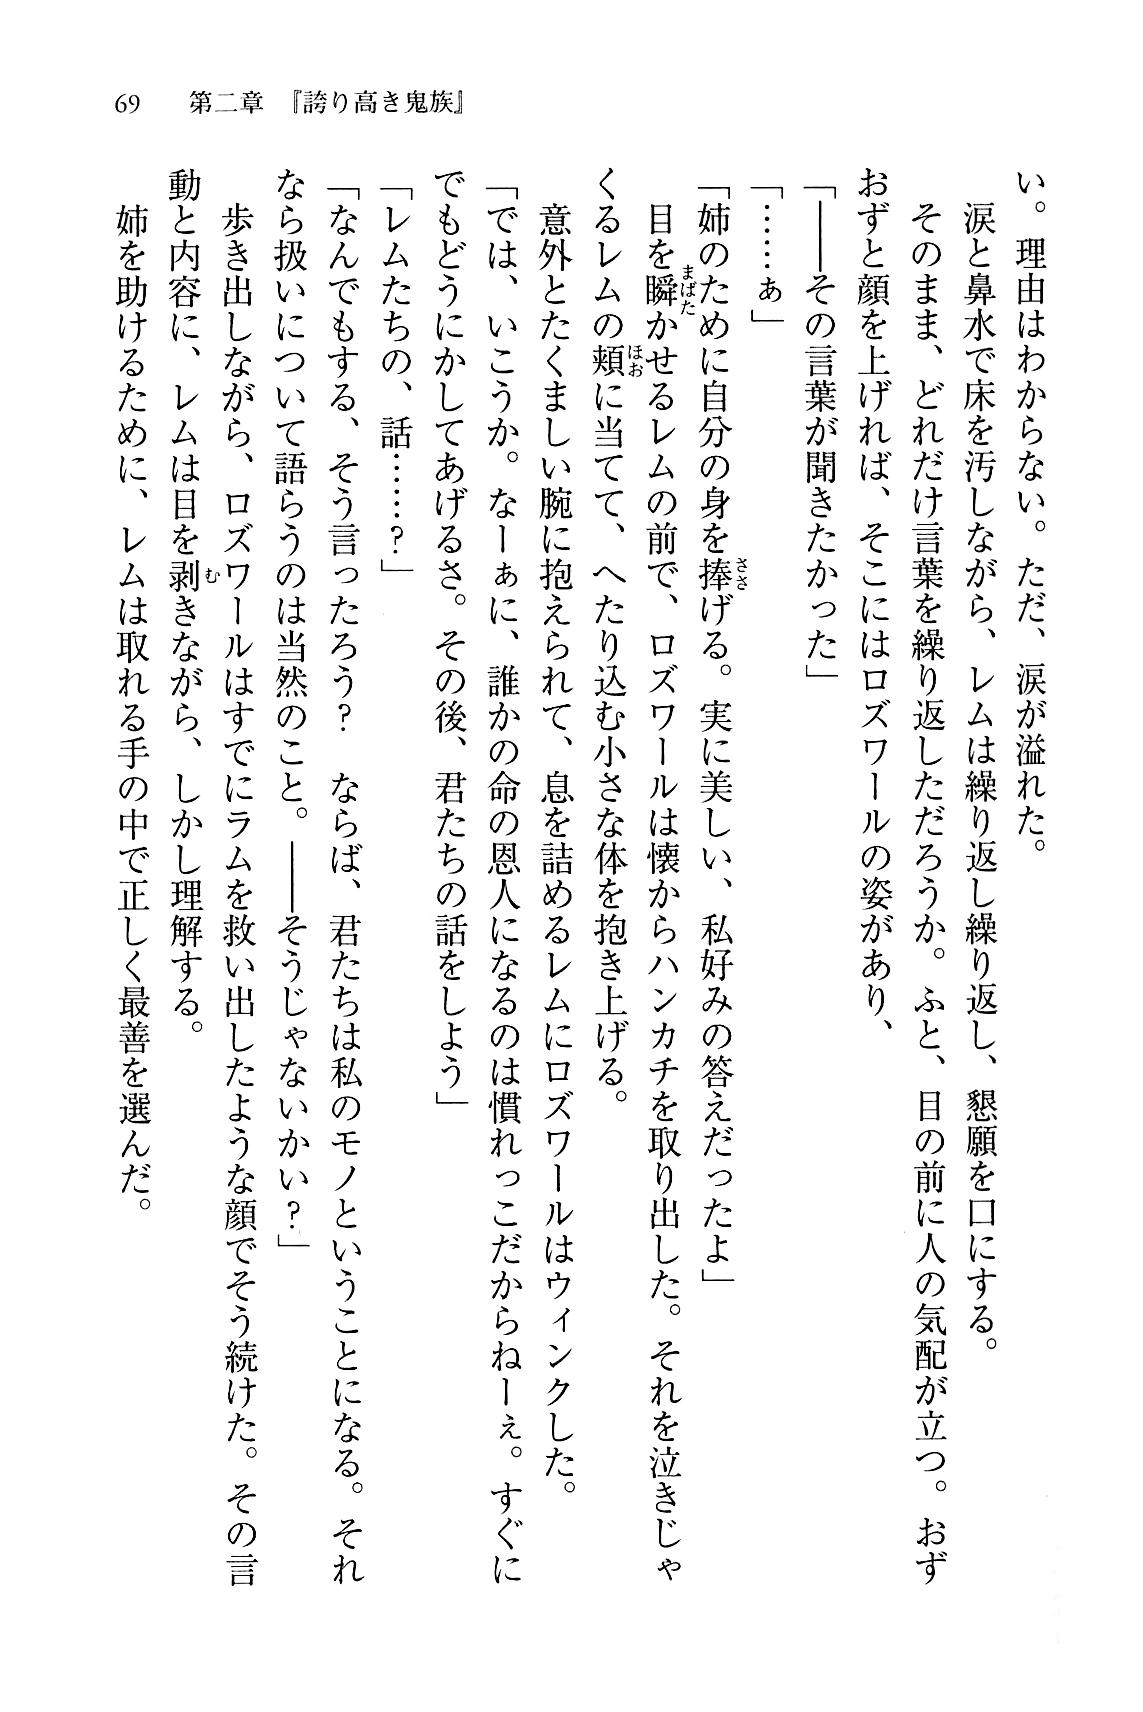 69　第二章　『誇り高き鬼族』
い。理由はわからない。ただ、涙が溢れた。
　涙と鼻水で床を汚しながら、レムは繰り返し繰り返し、懇願を口にする。
　そのまま、どれだけ言葉を繰り返しただろうか。ふと、目の前に人の気配が立つ。おず
おずと顔を上げれば、そこにはロズワールの姿があり、
「――その言葉が聞きたかった」
「……ぁ」
「姉のために自分の身を捧げる。実に美しい、私好みの答えだったよ」
　目を瞬かせるレムの前で、ロズワールは懐からハンカチを取り出した。それを泣きじゃ
くるレムの頬に当てて、へたり込む小さな体を抱き上げる。
　意外とたくましい腕に抱えられて、息を詰めるレムにロズワールはウィンクした。
「では、いこうか。なーぁに、誰かの命の恩人になるのは慣れっこだからねーぇ。すぐに
でもどうにかしてあげるさ。その後、君たちの話をしよう」
「レムたちの、話……？」
「なんでもする、そう言ったろう？　ならば、君たちは私のモノということになる。それ
なら扱いについて語らうのは当然のこと。――そうじゃないかい？」
　歩き出しながら、ロズワールはすでにラムを救い出したような顔でそう続けた。その言
動と内容に、レムは目を剥きながら、しかし理解する。
　姉を助けるために、レムは取れる手の中で正しく最善を選んだ。